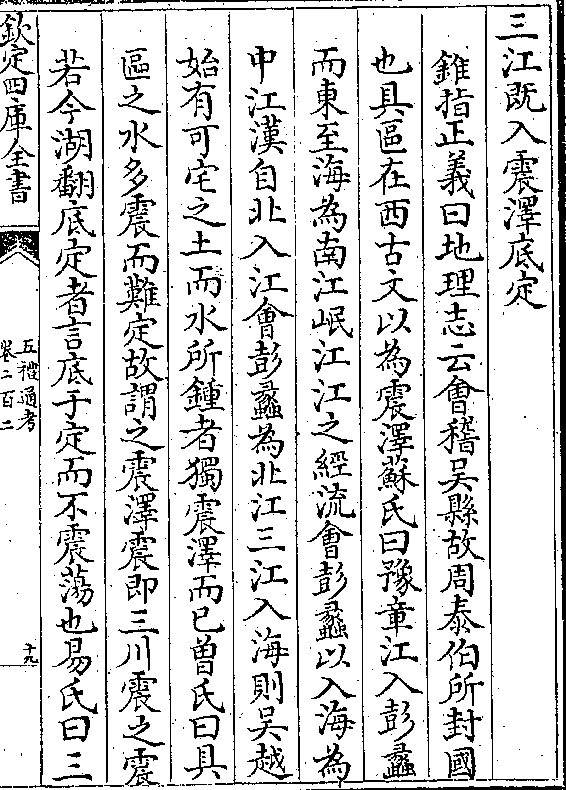 三江既入震澤底定
錐指正義曰地理志云會稽吳縣故周泰伯所封國
也具區在西古文以為震澤蘇氏曰豫章江入彭蠡
而東至海為南江岷江江之經流會彭蠡以入海為
中江漢自北入江會彭蠡為北江三江入海則吳越
始有可宅之土而水所鍾者獨震澤而已曽氏曰具
區之水多震而難定故謂之震澤震即三川震之震
若今湖翻底定者言底于定而不震蕩也易氏曰三
欽定四庫全書
五禮通考
卷二百二
十九